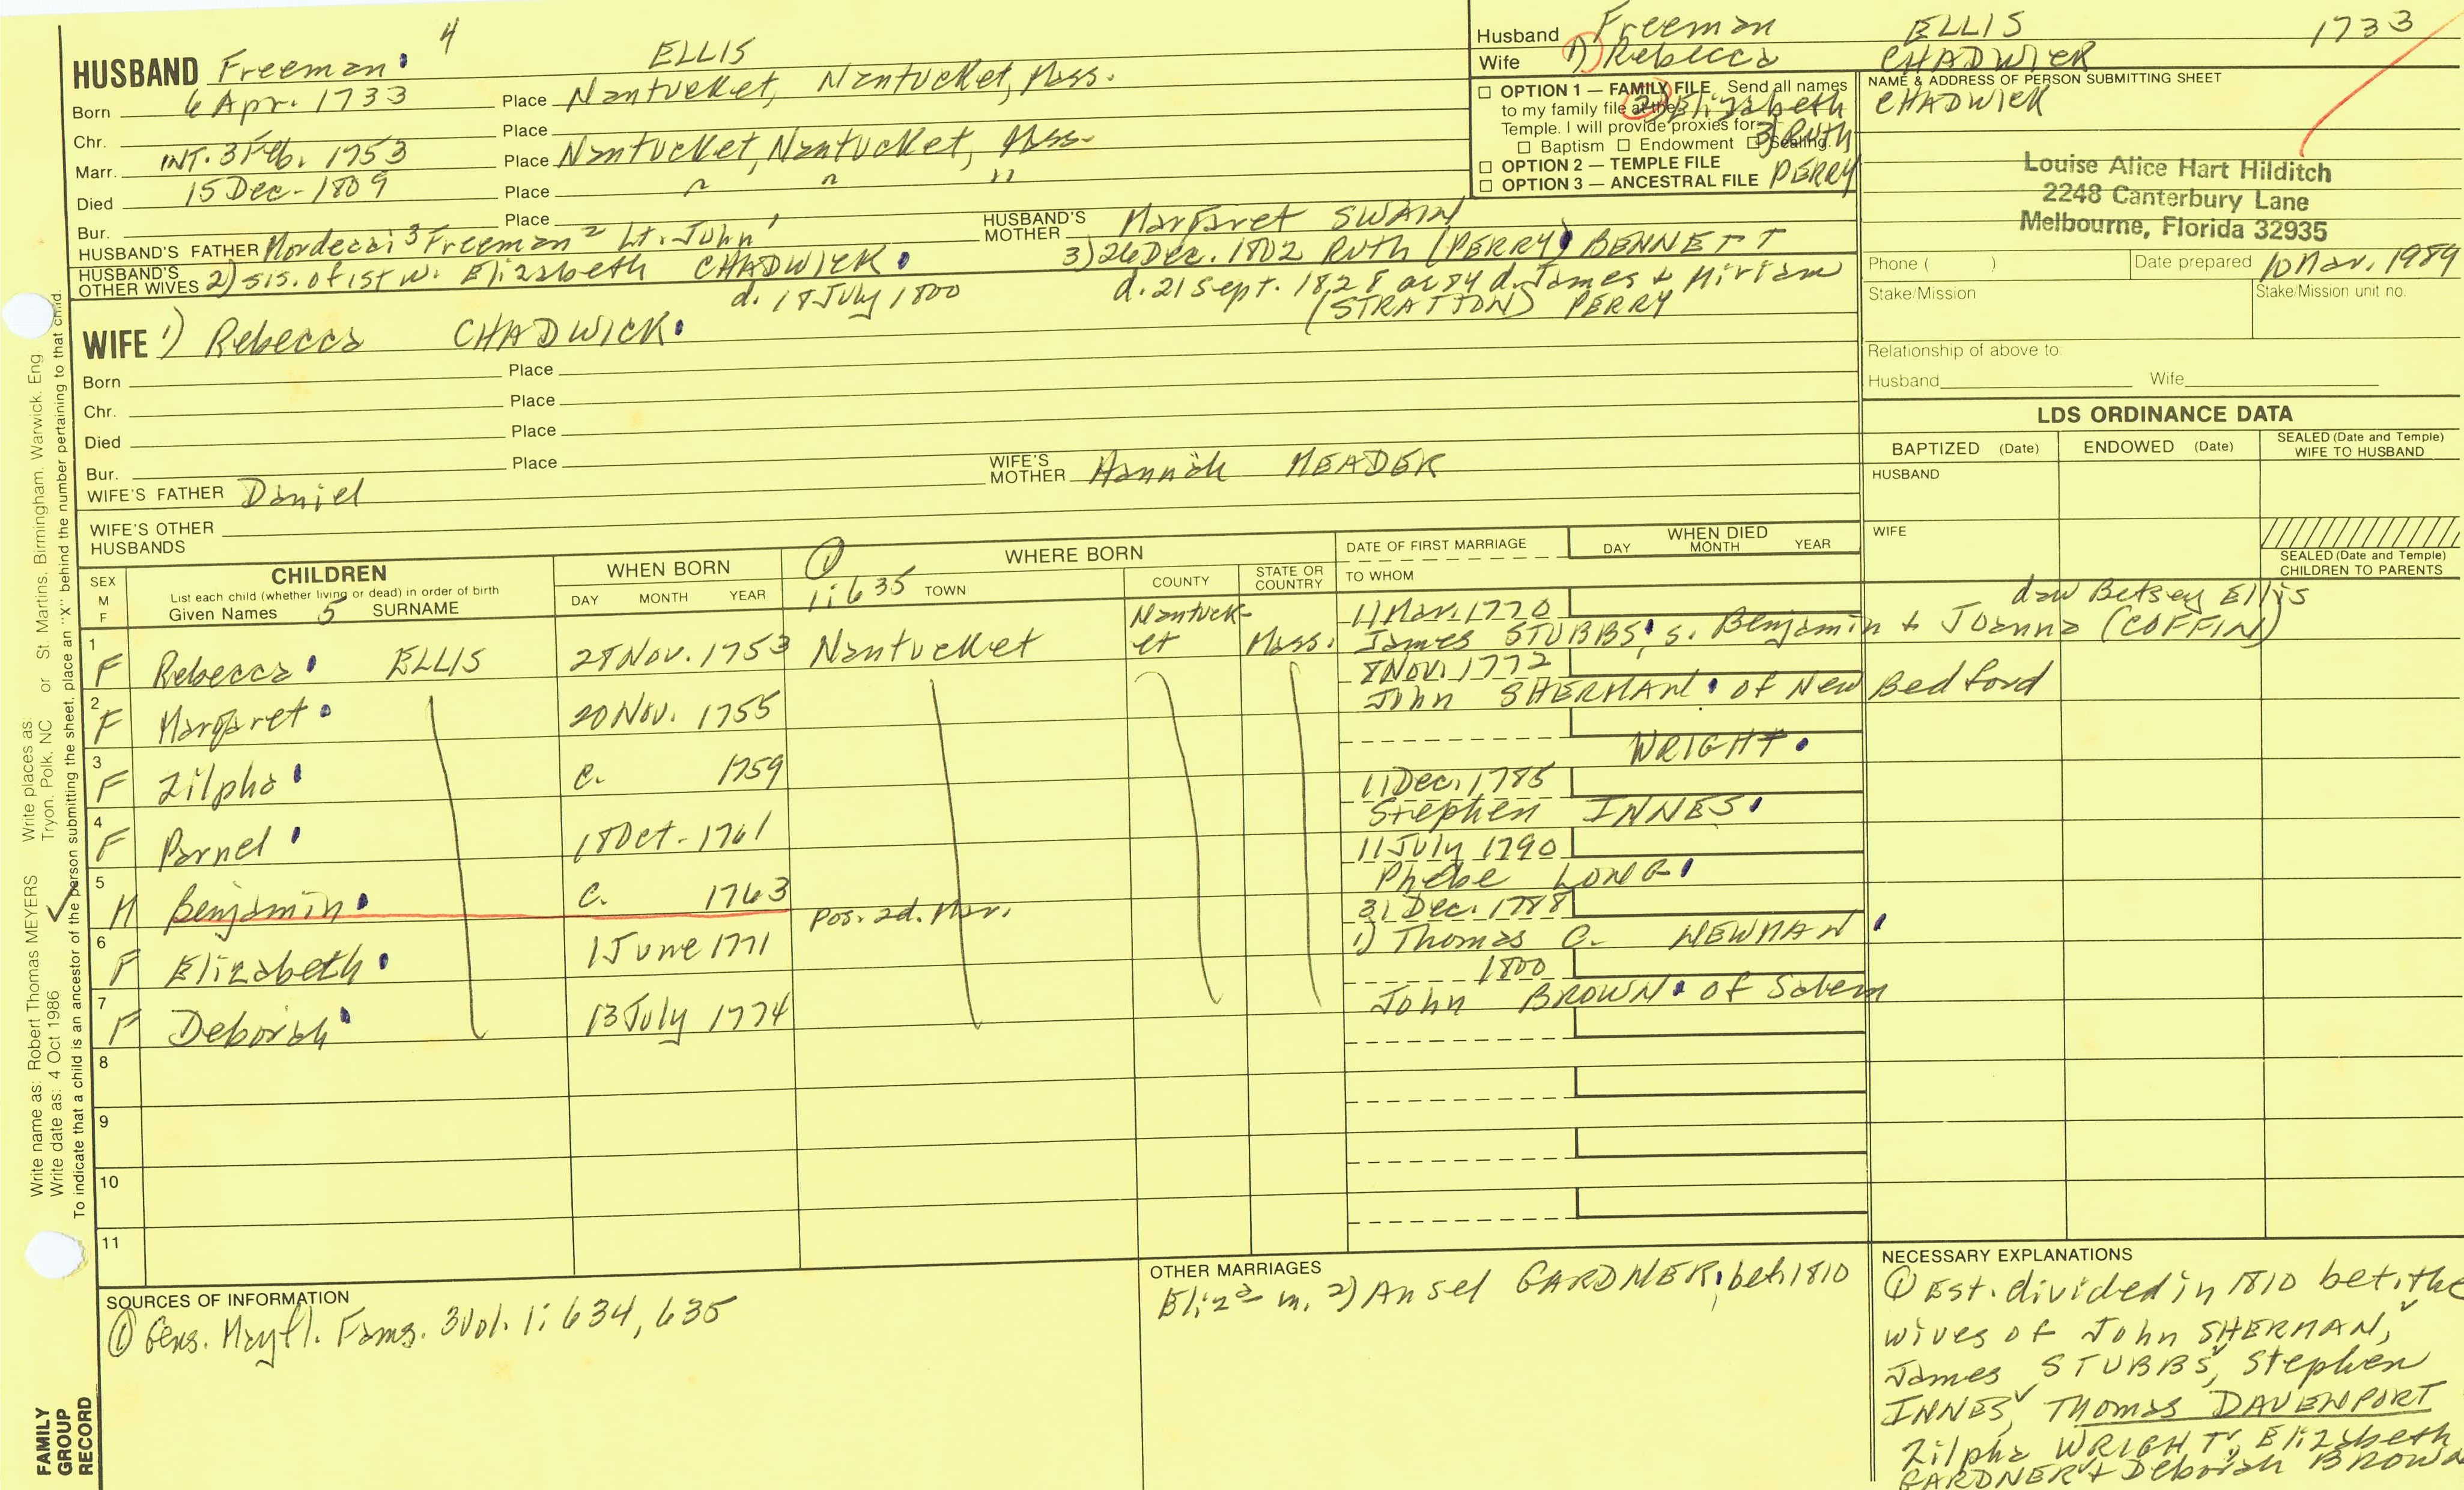 HUSBAND Freeman 4 ELLIS
Born 6 Apr. 1733 Place Nantucket, Nantucket, Mass.
Chr. Place
Marr. INT. 3 Feb. 1753 Place Nantucket, Nantucket, Mass.
Died 15 Dec. 1809 Place " " "
Bur. Place
HUSBAND'S FATHER Mordecai 3 Freeman 2 Lt. John 1 HUSBAND'S MOTHER Margaret SWAIN
HUSBAND'S OTHER WIVES 2) sis. of 1st w. Elizabeth CHADWICK 3) 26 Dec. 1802 Ruth (PERRY) BENNETT
d. 18 July 1800 d. 21 Sept. 1828 ae 84 d. James + Miriam
(STRATTON) PERRY
Husband Freeman ELLIS 1733
Wife 1) Rebecca CHADWICK
2) Elizabeth CHADWICK
3) Ruth PERRY
OPTION 1 — FAMILY FILE Send all names
to my family file at the
Temple. I will provide proxies for:
Baptism Endowment Sealing.
OPTION 2 — TEMPLE FILE
OPTION 3 — ANCESTRAL FILE
NAME & ADDRESS OF PERSON SUBMITTING SHEET
Louise Alice Hart Hilditch
2248 Canterbury Lane
Melbourne, Florida 32935
Phone ( ) Date prepared 10 Mar. 1989
Stake/Mission Stake/Mission unit no.
Relationship of above to:
Husband Wife
WIFE 1) Rebecca CHADWICK
Born Place
Chr. Place
Died Place
Bur. Place
WIFE'S FATHER Daniel WIFE'S MOTHER Hannah MEADER
WIFE'S OTHER
HUSBANDS
LDS ORDINANCE DATA
BAPTIZED (Date) ENDOWED (Date) SEALED (Date and Temple) WIFE TO HUSBAND
HUSBAND
WIFE
SEALED (Date and Temple)
CHILDREN TO PARENTS
SEX M F
CHILDREN
List each child (whether living or dead) in order of birth
Given Names 5 SURNAME
WHEN BORN
DAY MONTH YEAR
① 1:635
WHERE BORN
TOWN COUNTY STATE OR COUNTRY
DATE OF FIRST MARRIAGE
TO WHOM
WHEN DIED
DAY MONTH YEAR
1 F Rebecca ELLIS 28 Nov. 1753 Nantucket Nantuck-et Mass. 11 Mar. 1770
James STUBBS, s. Benjamin + Joanna (COFFIN)
daw Betsey Ellis
2 F Margaret 20 Nov. 1755 8 Nov. 1772
John SHERMAN of New Bedford
3 F Zilpha c. 1759
WRIGHT
4 F Parnel 18 Oct. 1761 11 Dec. 1785
Stephen INNES
5 M Benjamin c. 1763 11 July 1790
Phebe LONG
pos. 2d. Mar.
6 F Elizabeth 1 June 1771 31 Dec. 1788
1) Thomas C. NEWMAN
7 F Deborah 13 July 1774 1800
John BROWN of Salem
8
9
10
11
SOURCES OF INFORMATION
① Gens. Mayfl. Fams. 3 Vol. 1: 634, 635
OTHER MARRIAGES
Eliza m. 2) Ansel GARDNER, bef. 1810
NECESSARY EXPLANATIONS
① Est. divided in 1810 bet. the
wives of John SHERMAN,
James STUBBS, Stephen
INNES, Thomas DAVENPORT
Zilpha WRIGHT, Elizabeth
GARDNER + Deborah BROWN
Write name as: Robert Thomas MEYERS Write places as: St. Martins, Birmingham, Warwick, Eng.
Write date as: 4 Oct 1986 Tryon, Polk, NC or
To indicate that a child is an ancestor of the person submitting the sheet, place an "X" behind the number pertaining to that child.
FAMILY
GROUP
RECORD